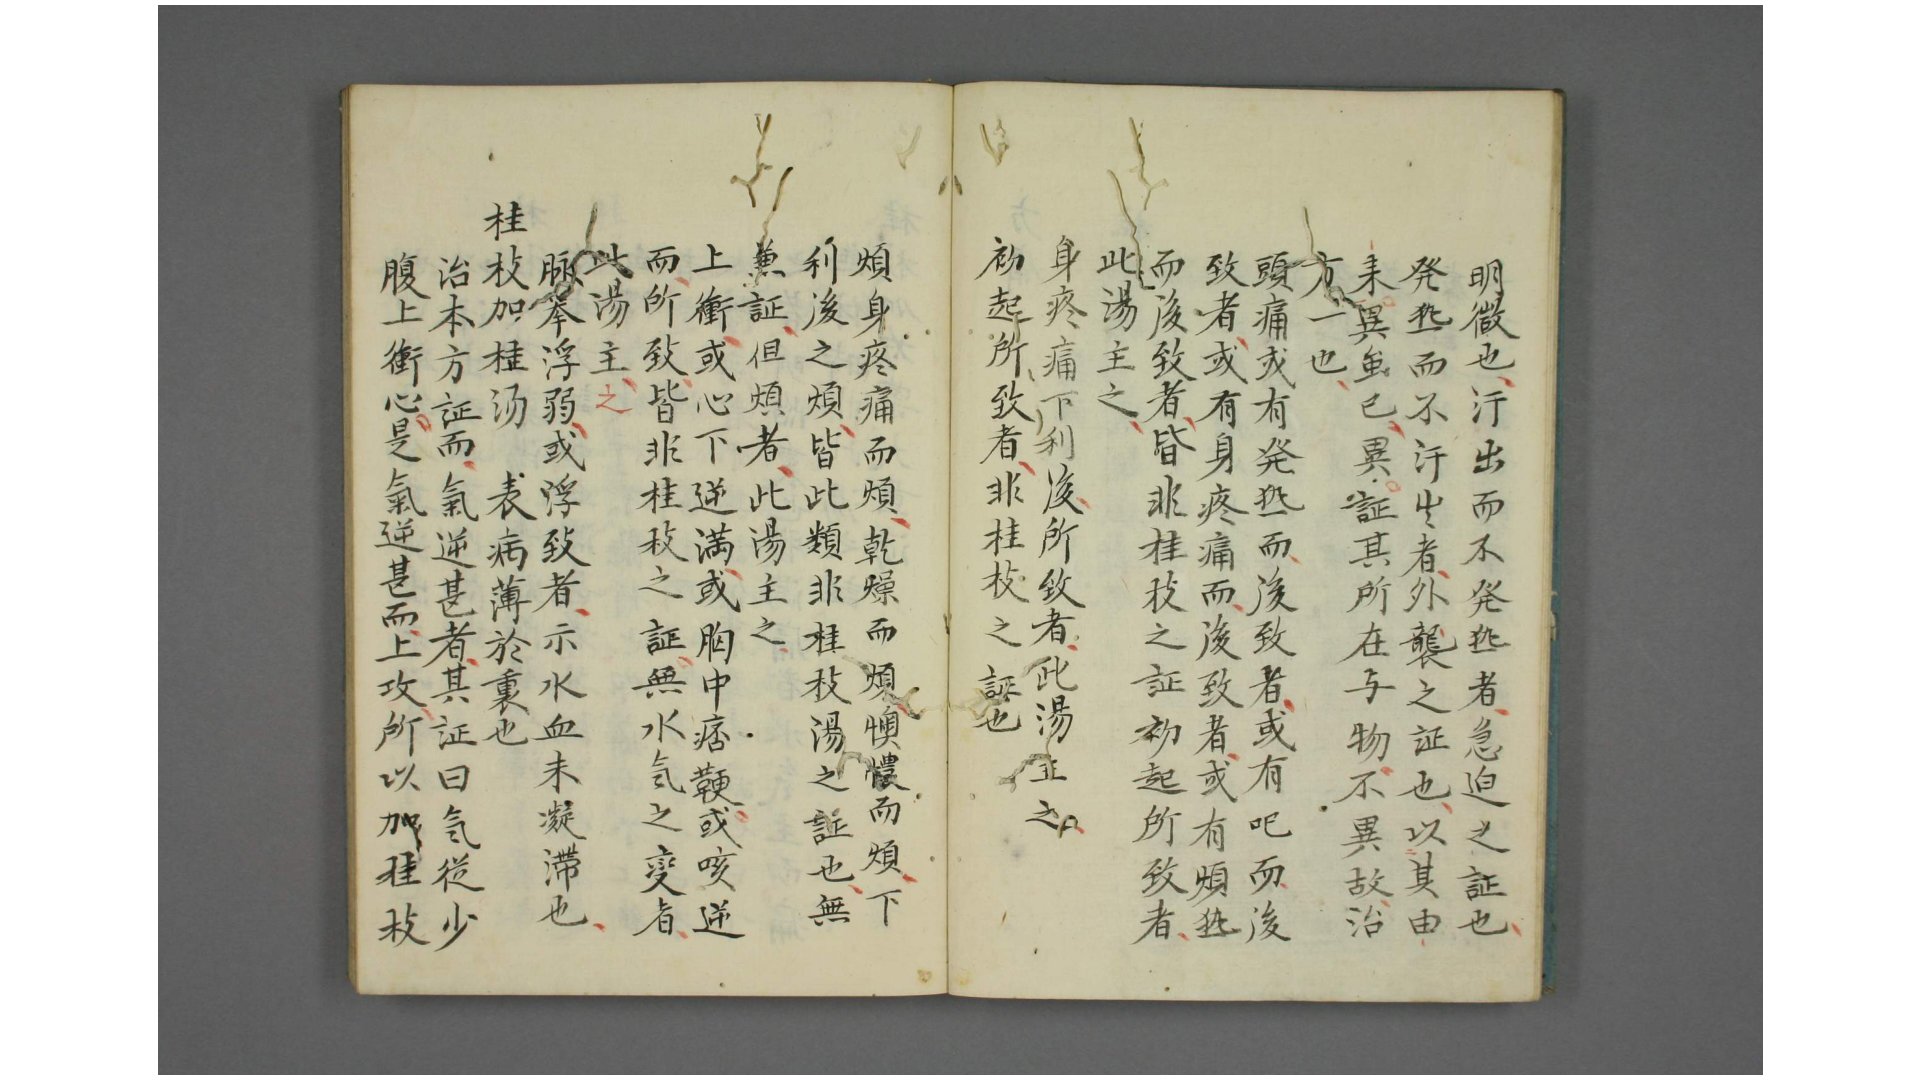 明徴也汗出而不発热者急迫之証也
発热而不汗出者外襲之証也以其由
来異虽已異証其所在与物不異故治
方一也
頭痛或有発热而後致者或有吧而後
致者或有身疼痛而後致者或有煩热
而後致者皆非桂枝之証初起所致者
此湯主之
身疼痛下利後所致者此湯正之
初起所致者非桂枝之証也
煩身疼痛而煩乾燥而煩懊憹而煩下
利後之煩皆此類非桂枝湯之証也無
兼証但煩者此湯主之
上衝或心下逆満或胸中痞鞕或咳逆
而所致皆非桂枝之証無水気之変者
此湯主之
脉挙浮弱或浮致者示水血未凝滞也
桂枝加桂汤 表病薄於裏也
治本方証而氣逆甚者其证曰気從少
腹上衝心是氣逆甚而上攻所以加桂枝